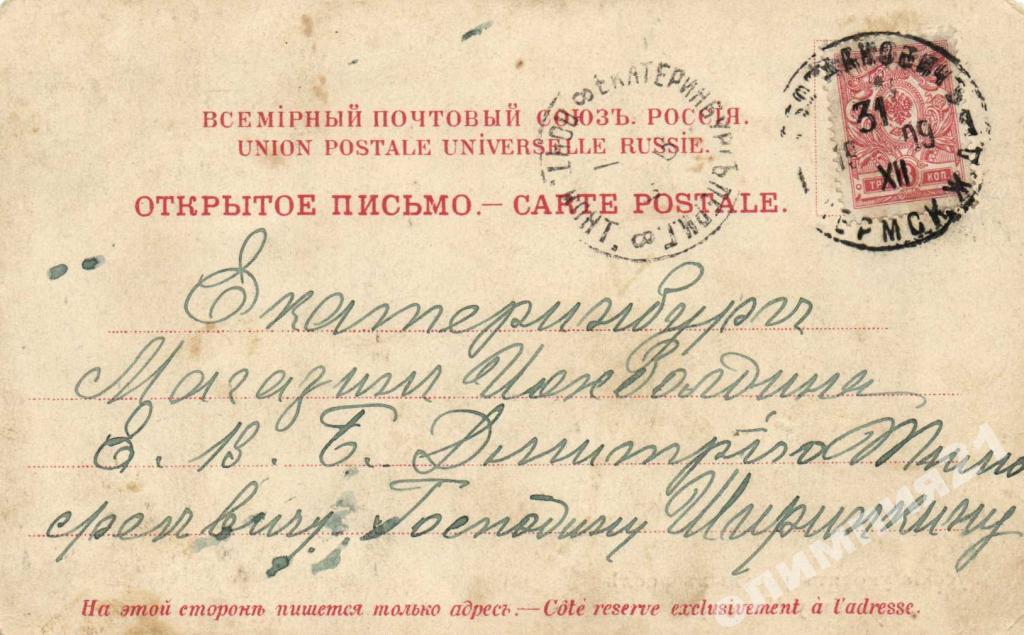 ВСЕМІРНЫЙ ПОЧТОВЫЙ СОЮЗЪ. РОССІЯ.
UNION POSTALE UNIVERSELLE RUSSIE.
ОТКРЫТОЕ ПИСЬМО.— CARTE POSTALE.
ЕКАТЕРИНБУРГЪ ПЕРМ.Г.
31
XII
09
КОП.
Екатеринбургъ
Магазин
Е. В. Б. Дмитрію Тимо
феевичу Господину Ширинкину
На этой сторонѣ пишется только адресъ.—Côté reserve exclusivement à l'adresse.
олимпия21